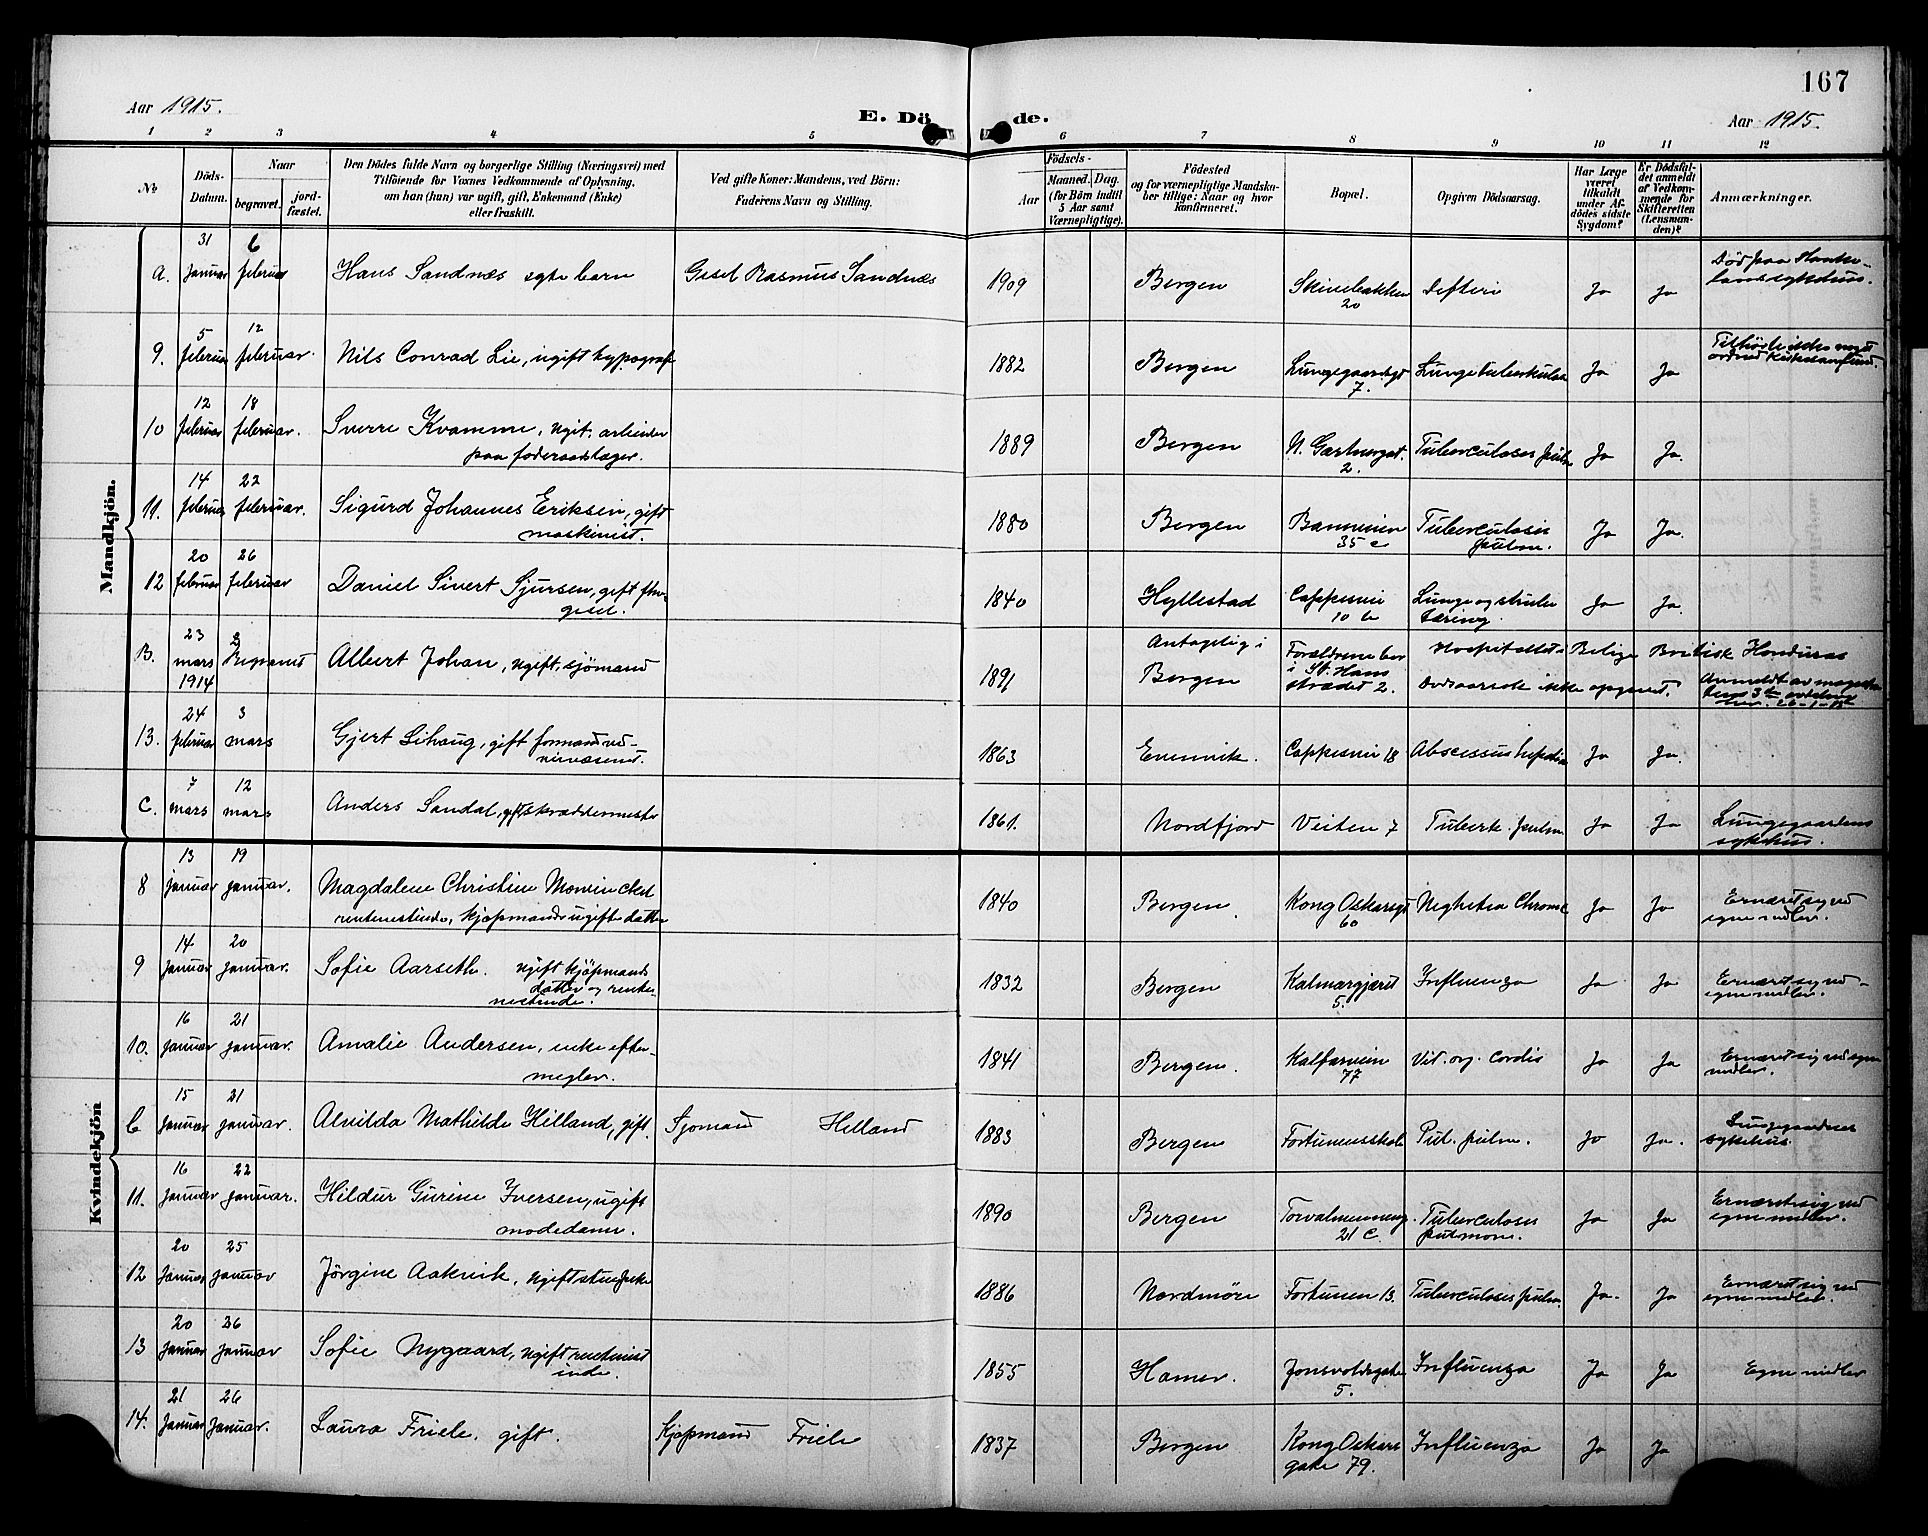 167
Aar 1915.
E. Dö de.
Aar 1915.
1 2 3 4 5 6 7 8 9 10 11 12
No
Döds-
Datum.
Naar
begravet.
jord-
fæstet.
Den Dödes fulde Navn og borgerlige Stilling (Næringsvei) med
Tilföiende for Voxnes Vedkommende af Oplysning,
om han (hun) var ugift, gift, Enkemand (Enke)
eller fraskilt.
Ved gifte Koner: Mandens, ved Börn:
Faderens Navn og Stilling.
Aar
Födsels-
Maaned. Dag.
(for Börn indtil
5 Aar samt
Værnepligtige).
Födested
og for værnepligtige Mandska-
ber tillige: Naar og hvor
konfirmeret.
Bopæl.
Opgiven Dödsaarsag.
Har Læge
været
tilkaldt
under Af-
dödes sidste
Sygdom?
Er Dödsfal-
det anmeldt
af Vedkom-
mende for
Skifteretten
(Lensman-
den)?
Anmærkninger.
Mandkjön.
a. 31 januar 6 februar Hans Sandnes egte barn Gesel Rasmus Sandnes 1909 Bergen Skivebakken 20 Defteri Ja Ja Död paa Hauke-
landsykehus.
9. 5 februar 12 februar. Nils Conrad Lie, ugift typograf 1882 Bergen Lungegaardsgt 7. Lungetuberkulose Ja Ja
10 12 februar 18 februar. Sverre Kvamme, ugit. arbeider
paa 1889 Bergen N. Gartnergt. 2. Tuberculoses pulm Ja Ja.
11. 14 februar 22 februar. Sigurd Johannes Eriksen, gift
maskinist. 1880 Bergen 35 c Tuberculosis
pulm. Ja Ja.
12 20 februar 26 februar Daniel Sivert Sjursen, gift
1840 Hyllestad Cappesvei 10 b Lunge og strube
tæring. Ja Ja.
B. 23 mars 1914 Albert Johan, ugift, sjömand 1891 Antagelig i
Bergen Forældrene bor
i St. Hans
strædet 2. Hospitalet Belize Britisk Honduras
Dødsaarsak ikke opgivet. Anmeldt av
13. 24 februar 3 mars Gjert Lihaug, gift formand ved
1863 Evenvik. Cappesvei 18 Abscessus hepatis Ja Ja.
C. 7 mars 12 mars Anders Sandal, gift skræddermester 1861. Nordfjord Veiten 7 Tuberk. pulm Ja Ja Lungegaardens
sykehus.
Kvindekjön
8 13 januar 19 januar. Magdalene Christine Mowinckel
rentenistinde, kjøpmands ugifte datter 1840 Bergen. Kong Oskarsgt 60 Ja Ja Ernæret sig ved
egne midler.
9 14 januar 20 januar. Sofie Aarseth. ugift kjöpmands
datter og rente-
nestinde. 1832 Bergen Kalmargjæret 5. Influenza Ja Ja Ernæret sig ved
egne midler.
10. 16 januar 21 januar. Amalie Andersen, enke efter
megler. 1841 Bergen. Kalfarveien 77 Vit. org. cordis Ja Ja Ernæret sig ved egne
midler.
15 januar 21 januar. Alvilda Mathilde Hilland, gift. Sjömand Hilland 1883 Bergen Pul. pulm. Ja Ja. Lungegaardens
sykehus
11. 16 januar 22 januar. Hildur Gurine Iversen, ugift
modedame. 1890 Bergen 21 C. Tuberculoses
pulmon. Ja Ja Ernæret sig ved
egne midler.
12 20 januar 25 januar Jörgine Aakvik, ugift stuepike 1886 Nordmöre Fortunen 13. Tuberculosis pulm. Ja. Ja Ernæret sig ved
egne midler.
13 20 januar 26 januar Sofie Nygaard, ugift rentenist
inde. 1855 Hamer. Jonsvoldsgate 5. Influenza Ja Ja Egne midler
14. 21 januar 26 januar. Laura Friele, gift. Kjøpmand Friele 1837 Bergen Kong Oskars
gate 79. Influenza Ja Ja